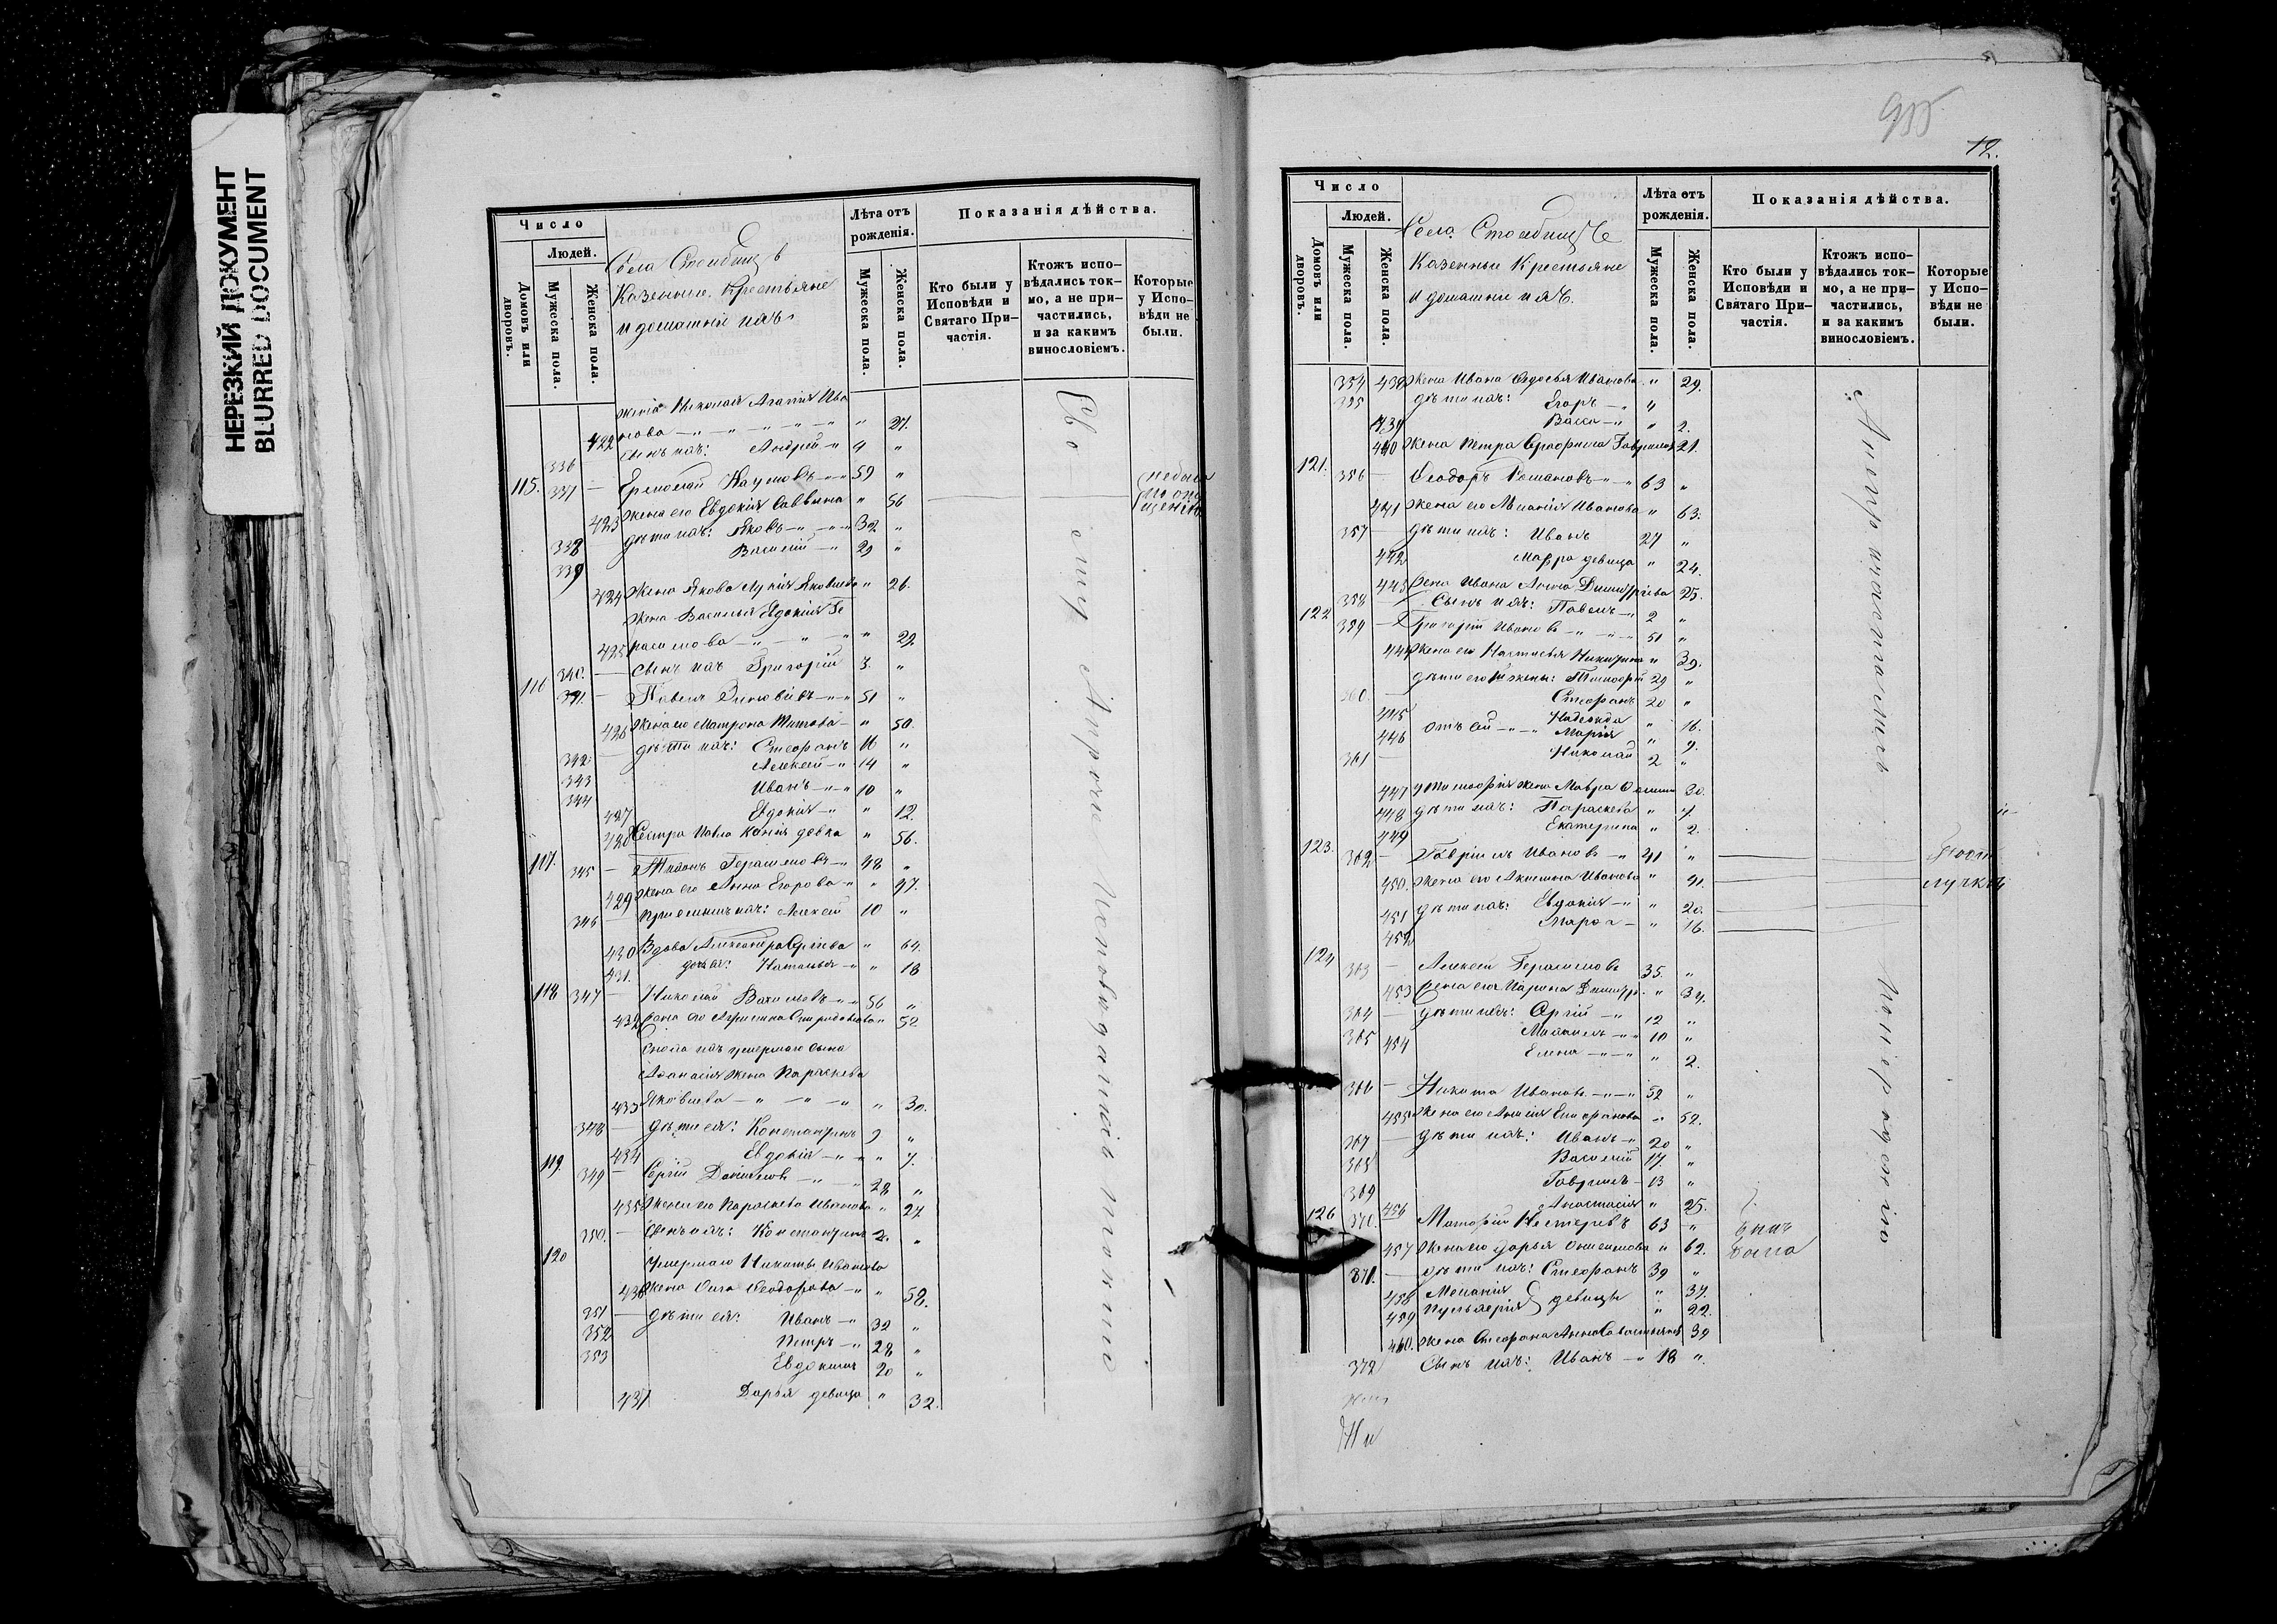 НЕРЕЗКИЙ ДОКУМЕНТ
BLURRED DOCUMENT
Число
Людей.
Домовъ или дворовъ.
Мужеска пола.
Женска пола.
Села Столбищъ
Казенные Крестьяне
и домашніе ихъ
Лѣта отъ рожденія.
Мужеска пола.
Женска пола.
Показанія дѣйства.
Кто были у Исповѣди и Святаго Причастія.
Ктожъ исповѣдались токмо, а не причастились, и за какимъ винословіемъ.
Которые у Исповѣди не были.
жена Николая Агапія Ива
422 нова " 27.
336 сынъ ихъ: Андрей 4 "
115. 337 Ермолай Наумовъ 59 "
423 жена его Евдокія Саввина " 56
338 дѣти ихъ: Яковъ 32 "
339 Василій 29 "
424 жена Якова Лукія Яковлева " 26.
жена Василья Евдокія Ге
425 расимова " 29.
340. сынъ ихъ Григорій 3. "
116 341. Павелъ Зиновіевъ 51 "
426 жена его Матрона Титова " 50.
342 дѣти ихъ: Стефанъ 16 "
343 Алексѣй 14 "
344 Иванъ 10 "
427 Евдокія " 12.
428 Сестра Павла Ксенія девка " 56.
117. 345 Тихонъ Герасимовъ 48 "
429 жена его Анна Егорова " 47.
346 Алексѣй 10 "
430 Вдова Александра Сергіева " 64.
431. дочь ея: Наталья " 18
118 347 Николай Васильевъ 56 "
432 жена его Агрипина Спиридонова " 52
Сноха ихъ умершаго сына
Афанасія жена Параскева
433 Яковлева " 30.
348 дѣти ея: Константинъ 9 "
434 Евдокія " 7.
119. 349 Сергій Даниловъ 28 "
435 жена его Параскева Иванова " 27
350. сынъ ихъ: Константинъ 2. "
120 Умершаго Никиты Иванова
436 жена Ольга Феодорова " 58.
351 дѣти ея: Иванъ 32 "
352 Петръ 28 "
353 Евдокимъ 20 "
437 Дарья девица " 32.
955
12.
Число
Людей.
Домовъ или дворовъ.
Мужеска пола.
Женска пола.
Села Столбищъ
Казенные Крестьяне
и домашніе ихъ.
Лѣта отъ рожденія.
Мужеска пола.
Женска пола.
Показанія дѣйства.
Кто были у Исповѣди и Святаго Причастія.
Ктожъ исповѣдались токмо, а не причастились, и за какимъ винословіемъ.
Которые у Исповѣди не были.
354 438 жена Ивана Федосья Иванова " 29.
355 дѣти ихъ: Егоръ "
439 Васса " 2.
440 жена Петра Серафима Гаврилова 21.
121. 356 Феодоръ Романовъ 63 "
441 жена его Меланія Иванова " 63.
357 дѣти ихъ: Иванъ 27 "
442 Марфа девица " 24.
443 жена Ивана Анна Димитріева 25.
358 Сынъ ихъ: Павелъ 2 "
122 359 Григорій Ивановъ 51 "
444 жена его Настасья Никитина " 39.
дѣти его жены: Тимофей 29 "
360. Стефанъ 20 "
445 отъ сей Надежда " 16.
446 Марія " 9.
361 Николай 2 "
447 у Тимофея жена Мавра 30.
448 дѣти ихъ: Параскева " 7.
449 Екатерина " 2.
123. 362 Гавріилъ Ивановъ 41 "
450. жена его Акилина Иванова " 41.
451 дѣти ихъ: Евдокія " 20.
452 Марфа " 16.
124 363 Алексѣй Герасимовъ 35. "
453 жена его Ирина Димитр. " 34.
364 дѣти ихъ: Сергій 12 "
365 Михаилъ 10 "
454 Елена " 2.
366 Никита Ивановъ 52 "
455 жена его Анисія Епифанова " 52.
367 дѣти ихъ: Иванъ 20 "
368 Василій 17. "
369 Гавріилъ 13 "
456 Анастасія " 25.
126 370. Матфій Нестеровъ 63 "
457 жена его Дарья Онисимова " 62.
371. дѣти ихъ: Стефанъ 39 "
458 Меланія девицы " 37.
459 Пульхерія " 22.
460. жена Стефана Анна Савастьянова 39
372 Сынъ ихъ: Иванъ 18 "